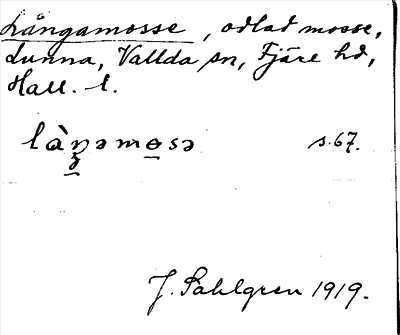 Långamosse, odlad mosse,
Lunna, Vallda sn, Fjäre hd,
Hall. l.
làŋəmo̲sə s. 67.
J. Sahlgren 1919.